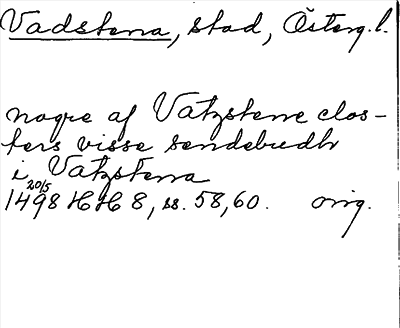 Vadstena, stad, Österg.l.
nogre af Vatzstene clos-
ters visse sendebudh
i Vatzstena
20/5
1498 HH 8, ss. 58, 60. orig.